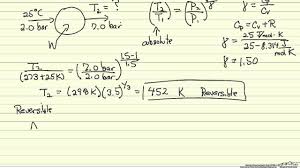 25°C T₂ = ?
2.0 bar W 7.0 bar
(T₂/T₁) = (P₂/P₁)
absolute
γ = Cp/Cv
Cp = Cv + R
γ = 25 J/mol·K
25 - 8.314 J/mol K
γ = 1.50
T₂/(273+25K) = (7.0 bar/2.0 bar)^((1.5-1)/1.5)
T₂ = (298K)(3.5)^(1/3) = 452 K Reversible
Reversible